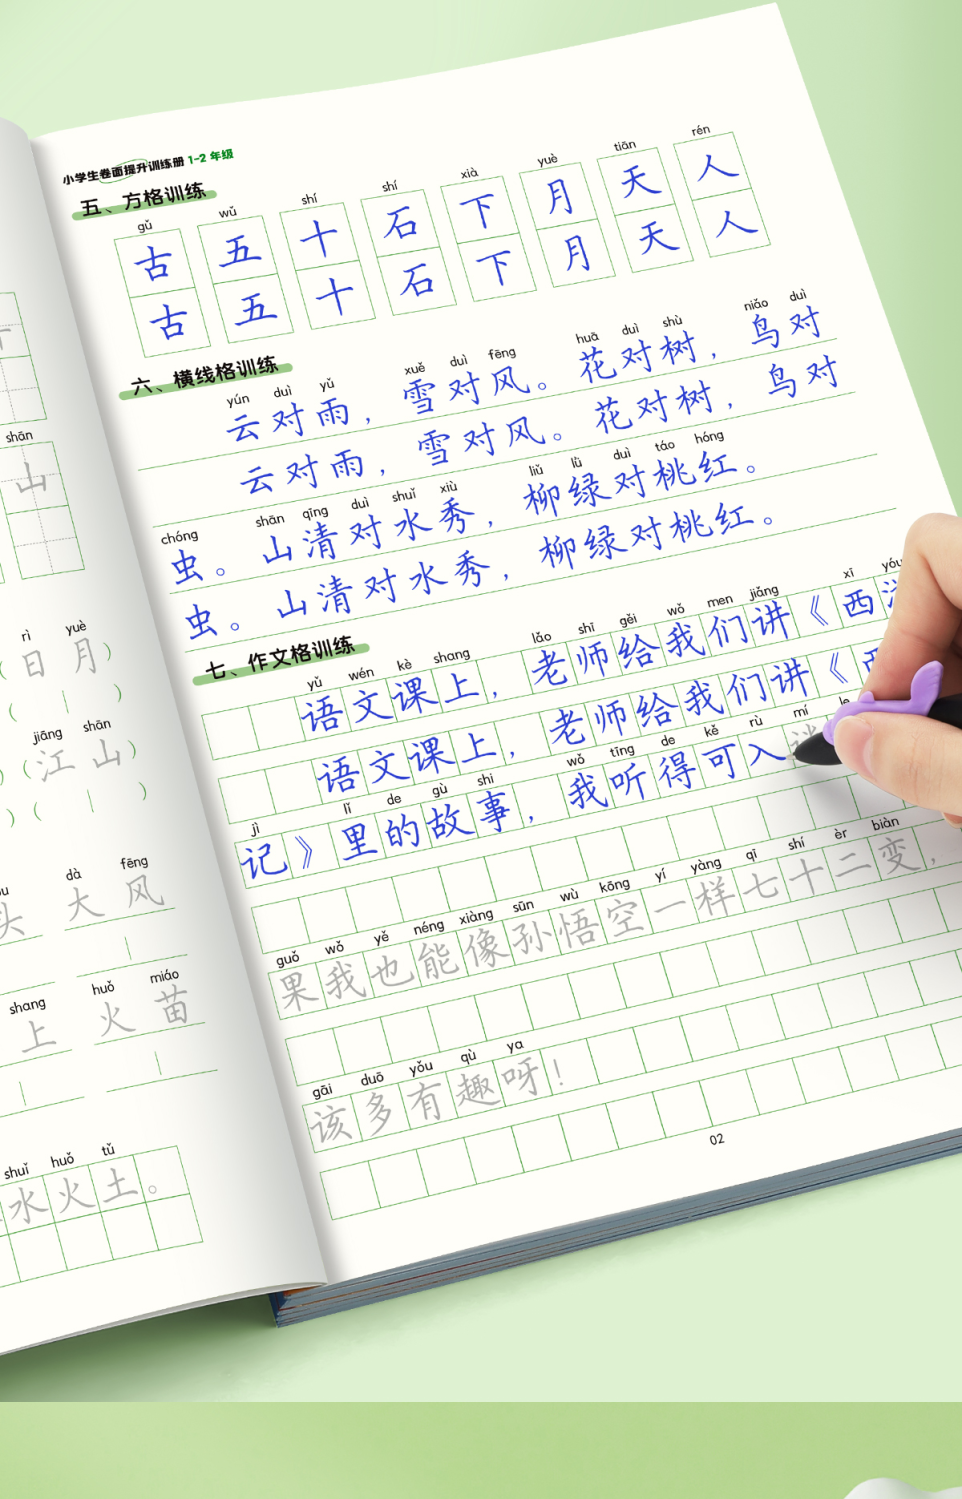 shān
山
rì yuè
( 日 月 )
( | )
jiāng shān
) ( 江 山 )
) ( | )
dà fēng
头 大 风
shang huǒ miáo
上 火 苗
shuǐ huǒ tǔ
水火土。
小学生卷面提升训练册 1-2 年级
五、方格训练
gǔ wǔ shí shí xià yuè tiān rén
古 五 十 石 下 月 天 人
古 五 十 石 下 月 天 人
六、横线格训练
yún duì yǔ xuě duì fēng huā duì shù niǎo duì
云对雨，雪对风。花对树，鸟对
云对雨，雪对风。花对树，鸟对
chóng shān qīng duì shuǐ xiù liǔ lǜ duì táo hóng
虫。山清对水秀，柳绿对桃红。
虫。山清对水秀，柳绿对桃红。
七、作文格训练
yǔ wén kè shang lǎo shī gěi wǒ men jiǎng xī yóu
语文课上，老师给我们讲《西游
语文课上，老师给我们讲《西
jì lǐ de gù shi wǒ tīng de kě rù mí le
记》里的故事，我听得可入迷
guǒ wǒ yě néng xiàng sūn wù kōng yí yàng qī shí èr biàn
果我也能像孙悟空一样七十二变，
gāi duō yǒu qù ya
该多有趣呀！
02